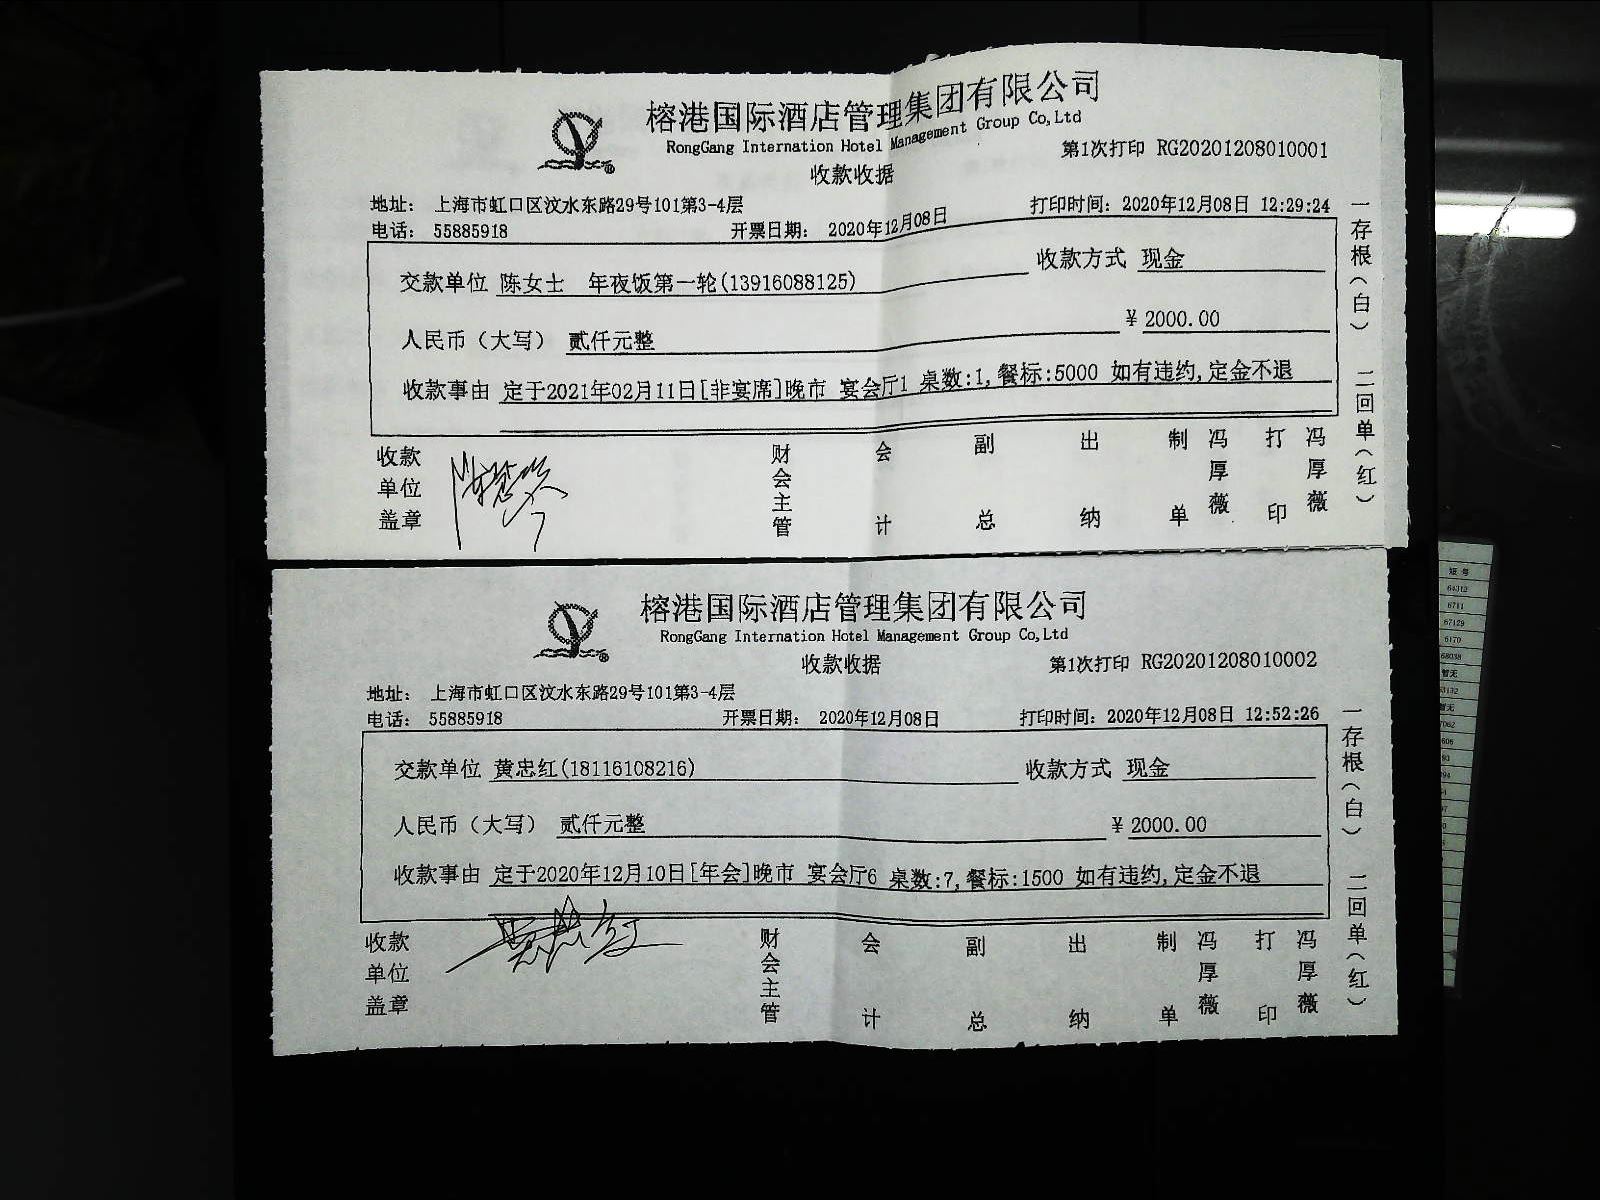 榕港国际酒店管理集团有限公司
RongGang Internation Hotel Management Group Co,Ltd
收款收据
第1次打印 RG20201208010001
地址： 上海市虹口区汶水东路29号101第3-4层
打印时间：2020年12月08日 12:29:24
电话： 55885918
开票日期： 2020年12月08日
交款单位 陈女士 年夜饭第一轮(13916088125)
收款方式 现金
人民币（大写） 贰仟元整
¥ 2000.00
收款事由 定于2021年02月11日[非宴席]晚市 宴会厅1 桌数:1,餐标:5000 如有违约,定金不退
收款单位盖章
财会主管
会计
副总
出纳
制单 冯厚薇
打印 冯厚薇
一存根（白） 二回单（红）
榕港国际酒店管理集团有限公司
RongGang Internation Hotel Management Group Co,Ltd
收款收据
第1次打印 RG20201208010002
地址： 上海市虹口区汶水东路29号101第3-4层
电话： 55885918
开票日期： 2020年12月08日
打印时间：2020年12月08日 12:52:26
交款单位 黄忠红(18116108216)
收款方式 现金
人民币（大写） 贰仟元整
¥ 2000.00
收款事由 定于2020年12月10日[年会]晚市 宴会厅6 桌数:7,餐标:1500 如有违约,定金不退
收款单位盖章
黄忠红
财会主管
会计
副总
出纳
制单 冯厚薇
打印 冯厚薇
一存根（白） 二回单（红）
短号
64312
6711
67129
6170
68038
暂无